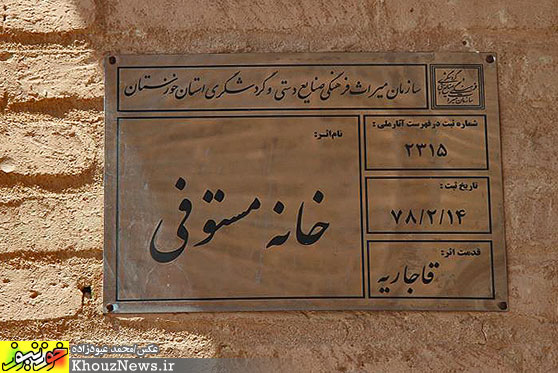 سازمان میراث فرهنگی صنایع دستی و گردشگری استان خوزستان
شماره ثبت در فهرست آثار ملی :
۲۳۱۵
نام اثر:
خانه مستوفی
تاریخ ثبت :
۷۸/۲/۱۴
قدمت اثر:
قاجاریه
خوزنیوز
عکس/محمد عبودزاده
KhouzNews.ir